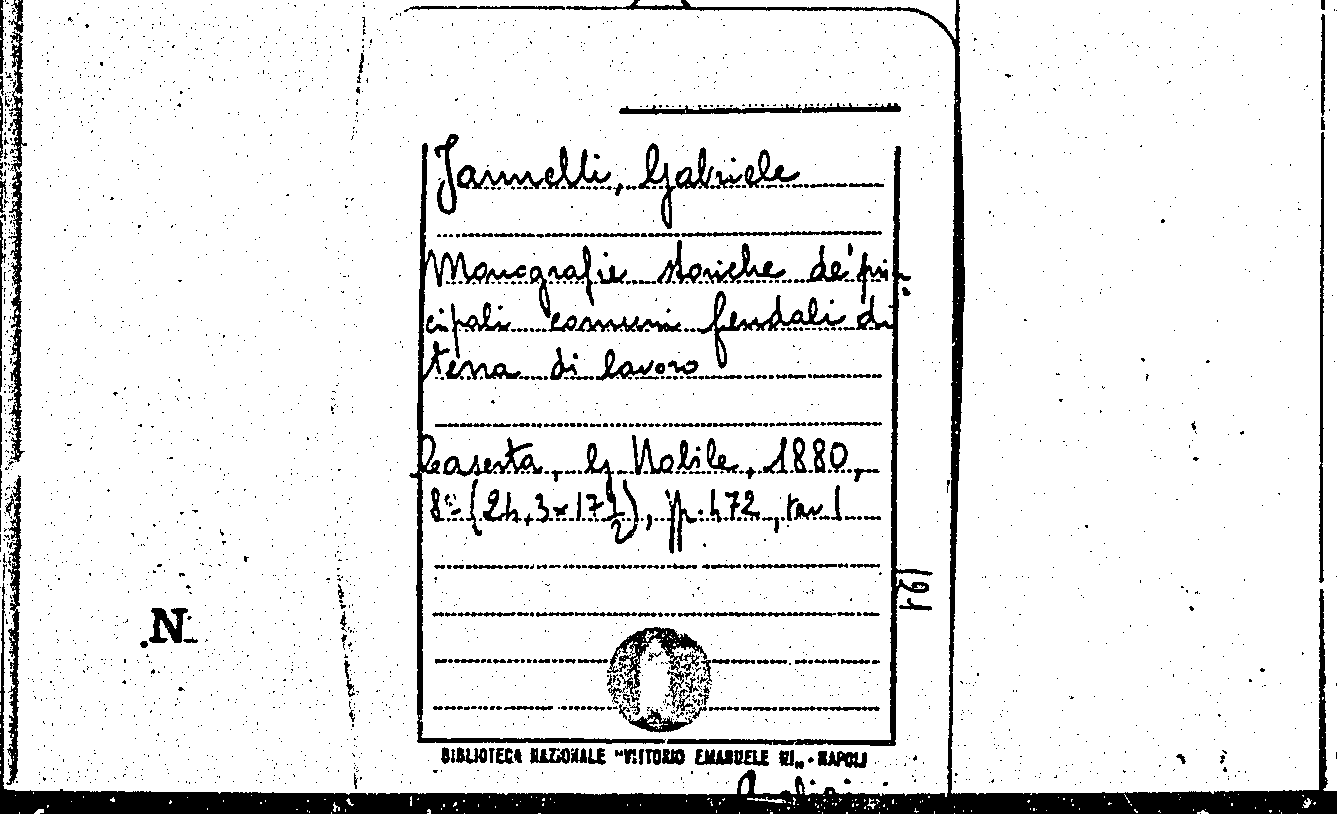 Jannelli, Gabriele
Monografie storiche de' prin-
cipali comuni feudali di
terra di lavoro
Caserta, G. Nobile, 1880,
8º (24,3×17 1/2), pp. 472, tav 1
194
.N.
BIBLIOTECA NAZIONALE "VITTORIO EMANUELE III„ - NAPOLI